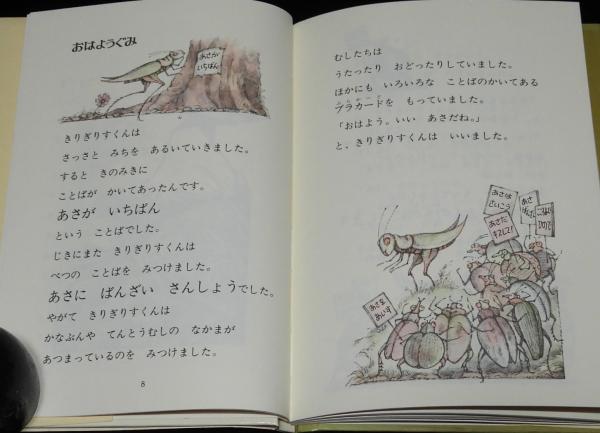 おはようぐみ
あさが
いちばん
きりぎりすくんは
さっさと みちを あるいていきました。
すると きのみきに
ことばが かいてあったんです。
あさが いちばん
という ことばでした。
じきにまた きりぎりすくんは
べつの ことばを みつけました。
あさに ばんざい さんしょうでした。
やがて きりぎりすくんは
かなぶんや てんとうむしの なかまが
あつまっているのを みつけました。
8
むしたちは
うたったり おどったりしていました。
ほかにも いろいろな ことばのかいてある
プラカードを もっていました。
「おはよう。いい あさだね。」
と、きりぎりすくんは いいました。
あさは
さいこう
あさだ
あさ
あさを
あいす